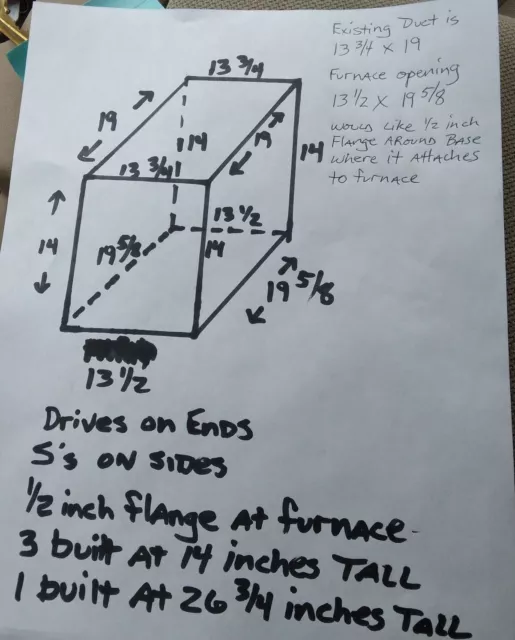 Existing Duct is
13 3/4 x 19
Furnace opening
13 1/2 x 19 5/8
would like 1/2 inch
Flange Around Base
where it Attaches
to furnace
13 3/4
19
14
19
14
13 3/4
13 1/2
14
19 5/8
14
19 5/8
13 1/2
Drives on Ends
S's on sides
1/2 inch flange at furnace-
3 built at 14 inches TALL
1 built At 26 3/4 inches TALL